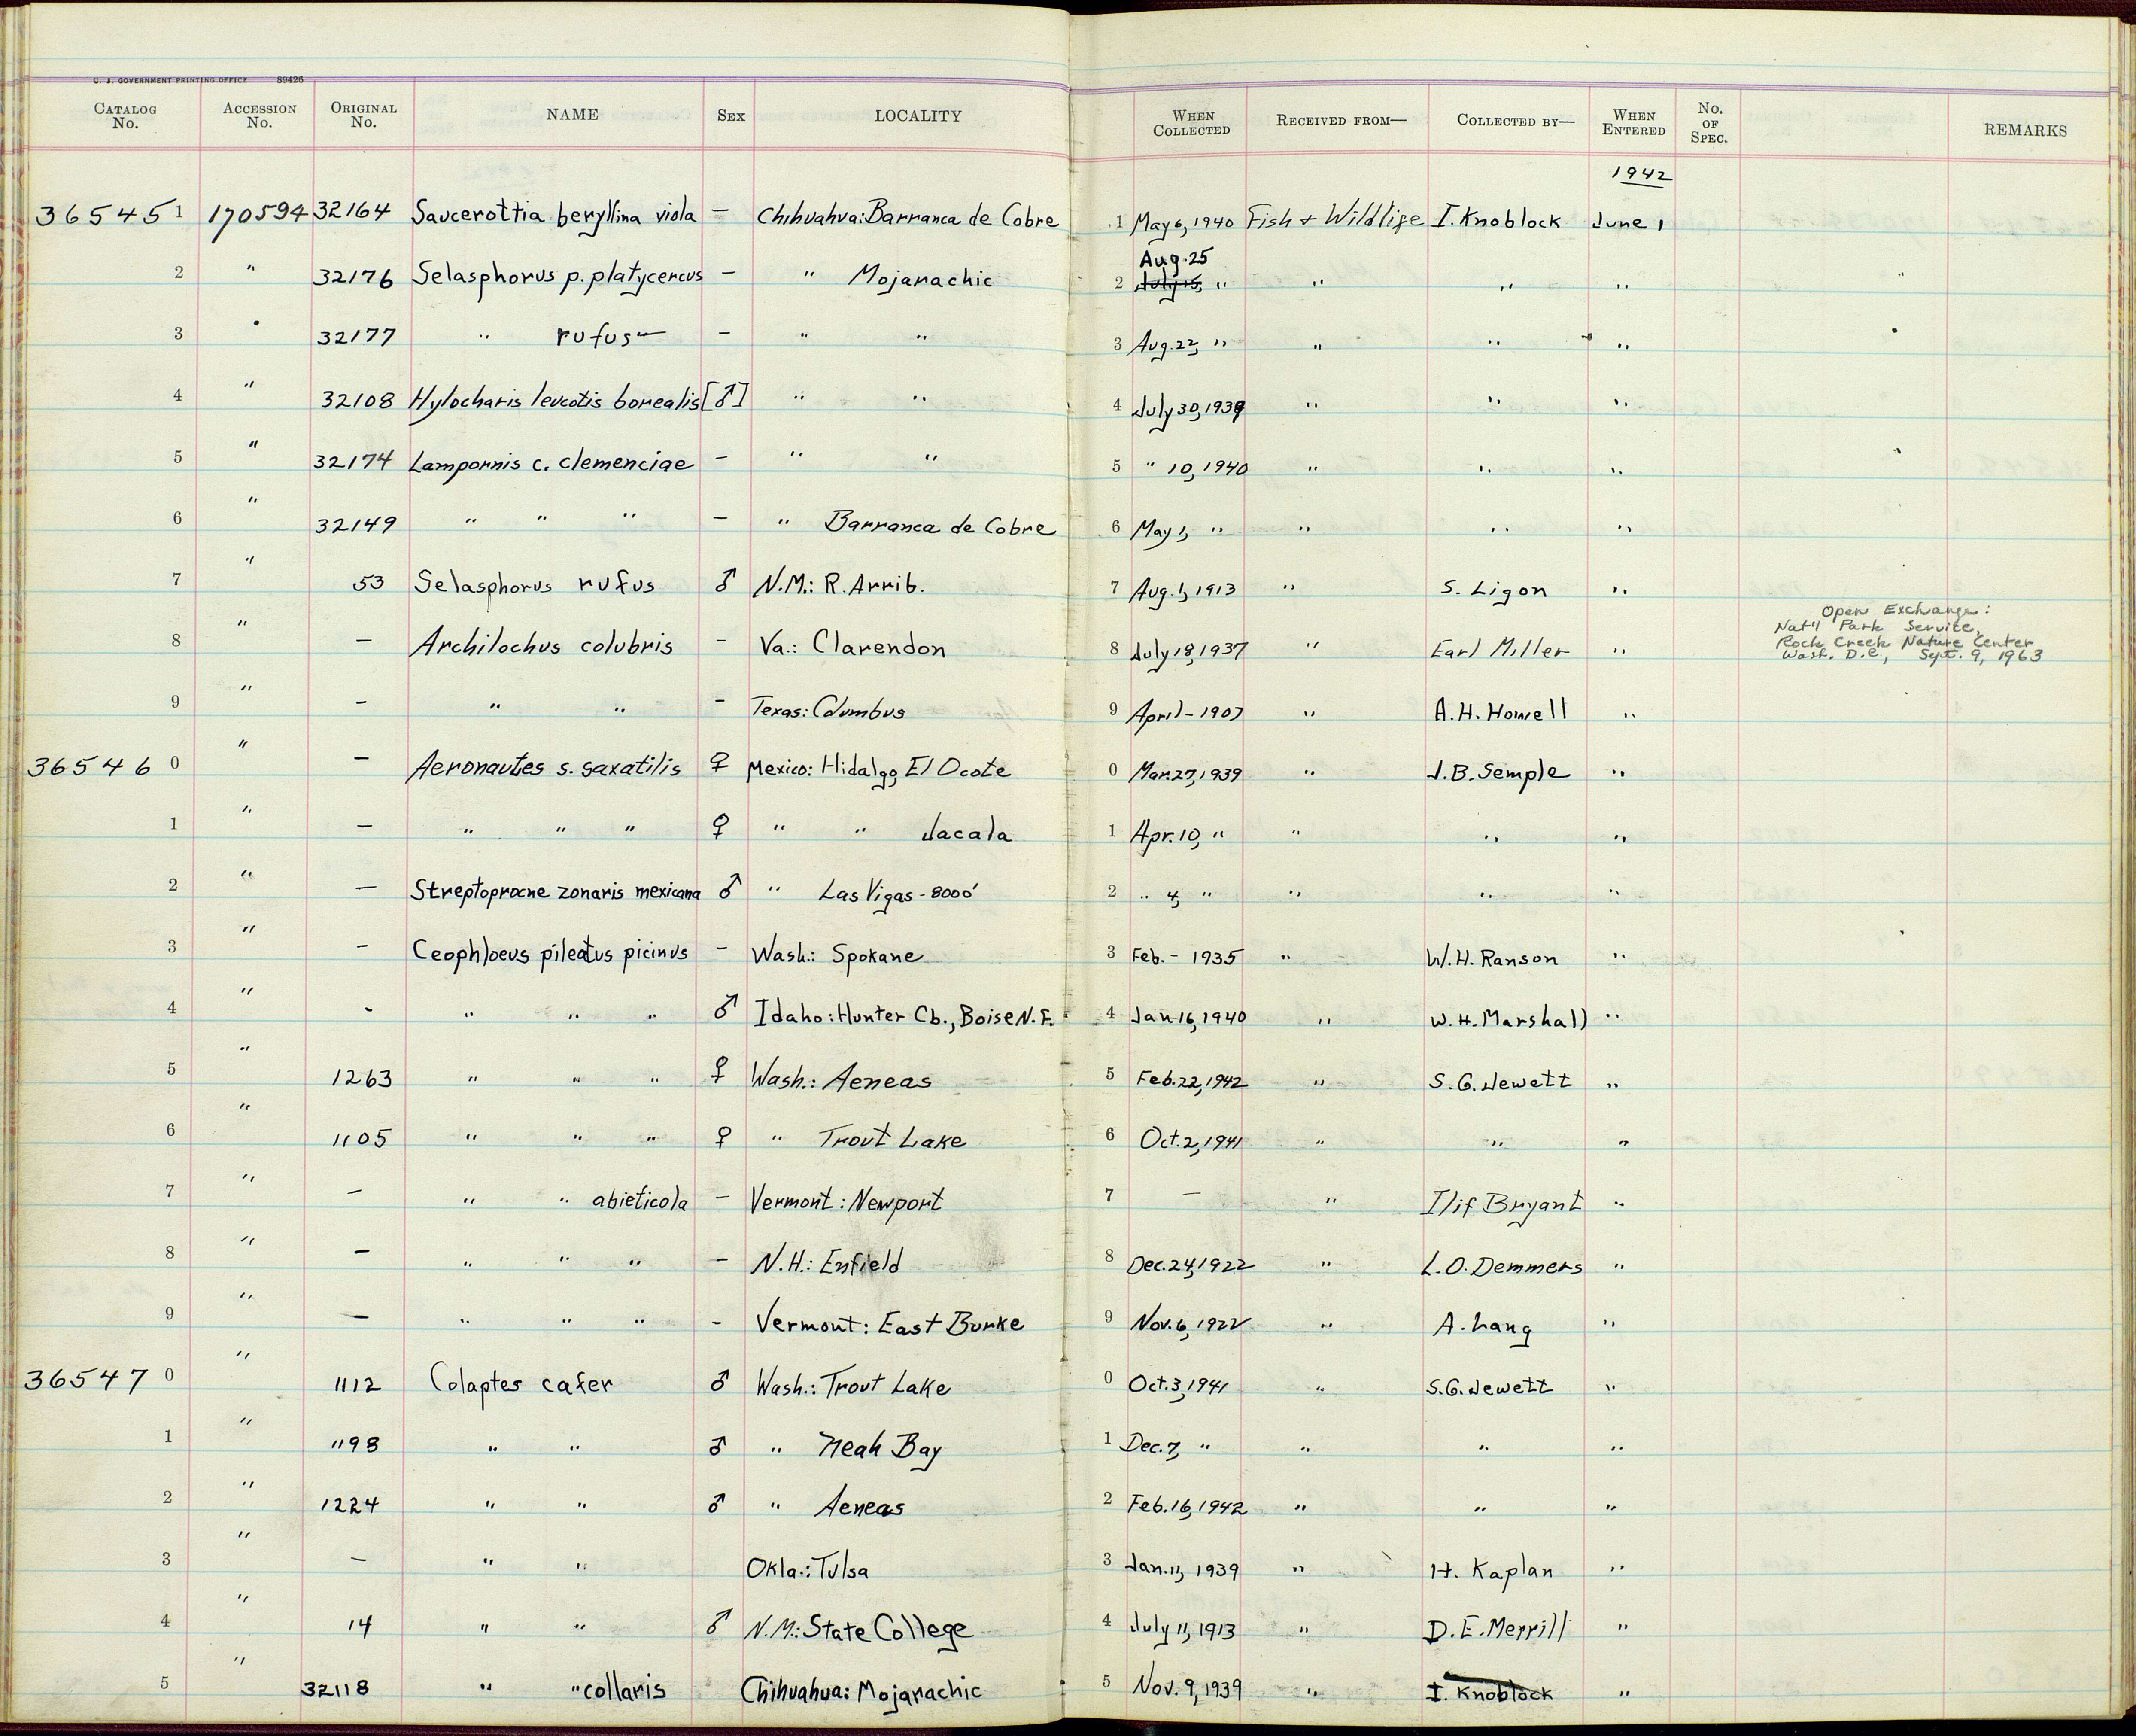 U. S. GOVERNMENT PRINTING OFFICE 89426
CATALOG No. ACCESSION No. ORIGINAL No. NAME SEX LOCALITY WHEN COLLECTED RECEIVED FROM— COLLECTED BY— WHEN ENTERED No. OF SPEC. REMARKS
1942
36545 1 170594 32164 Saucerottia beryllina viola – Chihuahua: Barranca de Cobre 1 May 6, 1940 Fish & Wildlife I. Knoblock June 1
Aug. 25
2 " 32176 Selasphorus p. platycercus – " Mojarachic 2 July 15, " " " "
3 " 32177 " rufus – – " " 3 Aug. 22, " " " "
4 " 32108 Hylocharis leucotis borealis [♂] " " 4 July 30, 1939 " " "
5 " 32174 Lampornis c. clemenciae – " " 5 " 10, 1940 " " "
6 " 32149 " " " – " Barranca de Cobre 6 May 1, " " " "
7 " 53 Selasphorus rufus ♂ N.M.: R. Arrib. 7 Aug. 1, 1913 " S. Ligon "
Open Exchange:
Nat'l Park Service,
8 " – Archilochus colubris – Va.: Clarendon 8 July 18, 1937 " Earl Miller " Rock Creek Nature Center
Wash. D.C., Sept. 9, 1963
9 " – " " – Texas: Columbus 9 April – 1907 " A. H. Howell "
36546 0 " – Aeronautes s. saxatilis ♀ Mexico: Hidalgo, El Ocote 0 Mar. 27, 1939 " J. B. Semple "
1 " – " " " ♀ " " Jacala 1 Apr. 10, " " " "
2 " – Streptoprocne zonaris mexicana ♂ " Las Vigas - 8000' 2 " 4, " " " "
3 " – Ceophloeus pileatus picinus – Wash.: Spokane 3 Feb. – 1935 " W. H. Ranson "
4 " – " " " ♂ Idaho: Hunter Cb., Boise N. F. 4 Jan. 16, 1940 " W. H. Marshall "
5 " 1263 " " " ♀ Wash.: Aeneas 5 Feb. 22, 1942 " S. G. Jewett "
6 " 1105 " " " ♀ " Trout Lake 6 Oct. 2, 1941 " " "
7 " – " " abieticola – Vermont: Newport 7 – " Ilif Bryant "
8 " – " " " – N.H.: Enfield 8 Dec. 24, 1922 " L. O. Demmers "
9 " – " " " – Vermont: East Burke 9 Nov. 6, 1922 " A. Lang "
36547 0 " 1112 Colaptes cafer ♂ Wash.: Trout Lake 0 Oct. 3, 1941 " S. G. Jewett "
1 " 1198 " " ♂ " Neah Bay 1 Dec. 7, " " " "
2 " 1224 " " ♂ " Aeneas 2 Feb. 16, 1942 " " "
3 " – " " Okla.: Tulsa 3 Jan. 11, 1939 " H. Kaplan "
4 " 14 " " ♂ N.M.: State College 4 July 11, 1913 " D. E. Merrill "
5 " 32118 " " collaris Chihuahua: Mojarachic 5 Nov. 9, 1939 " I. Knoblock "